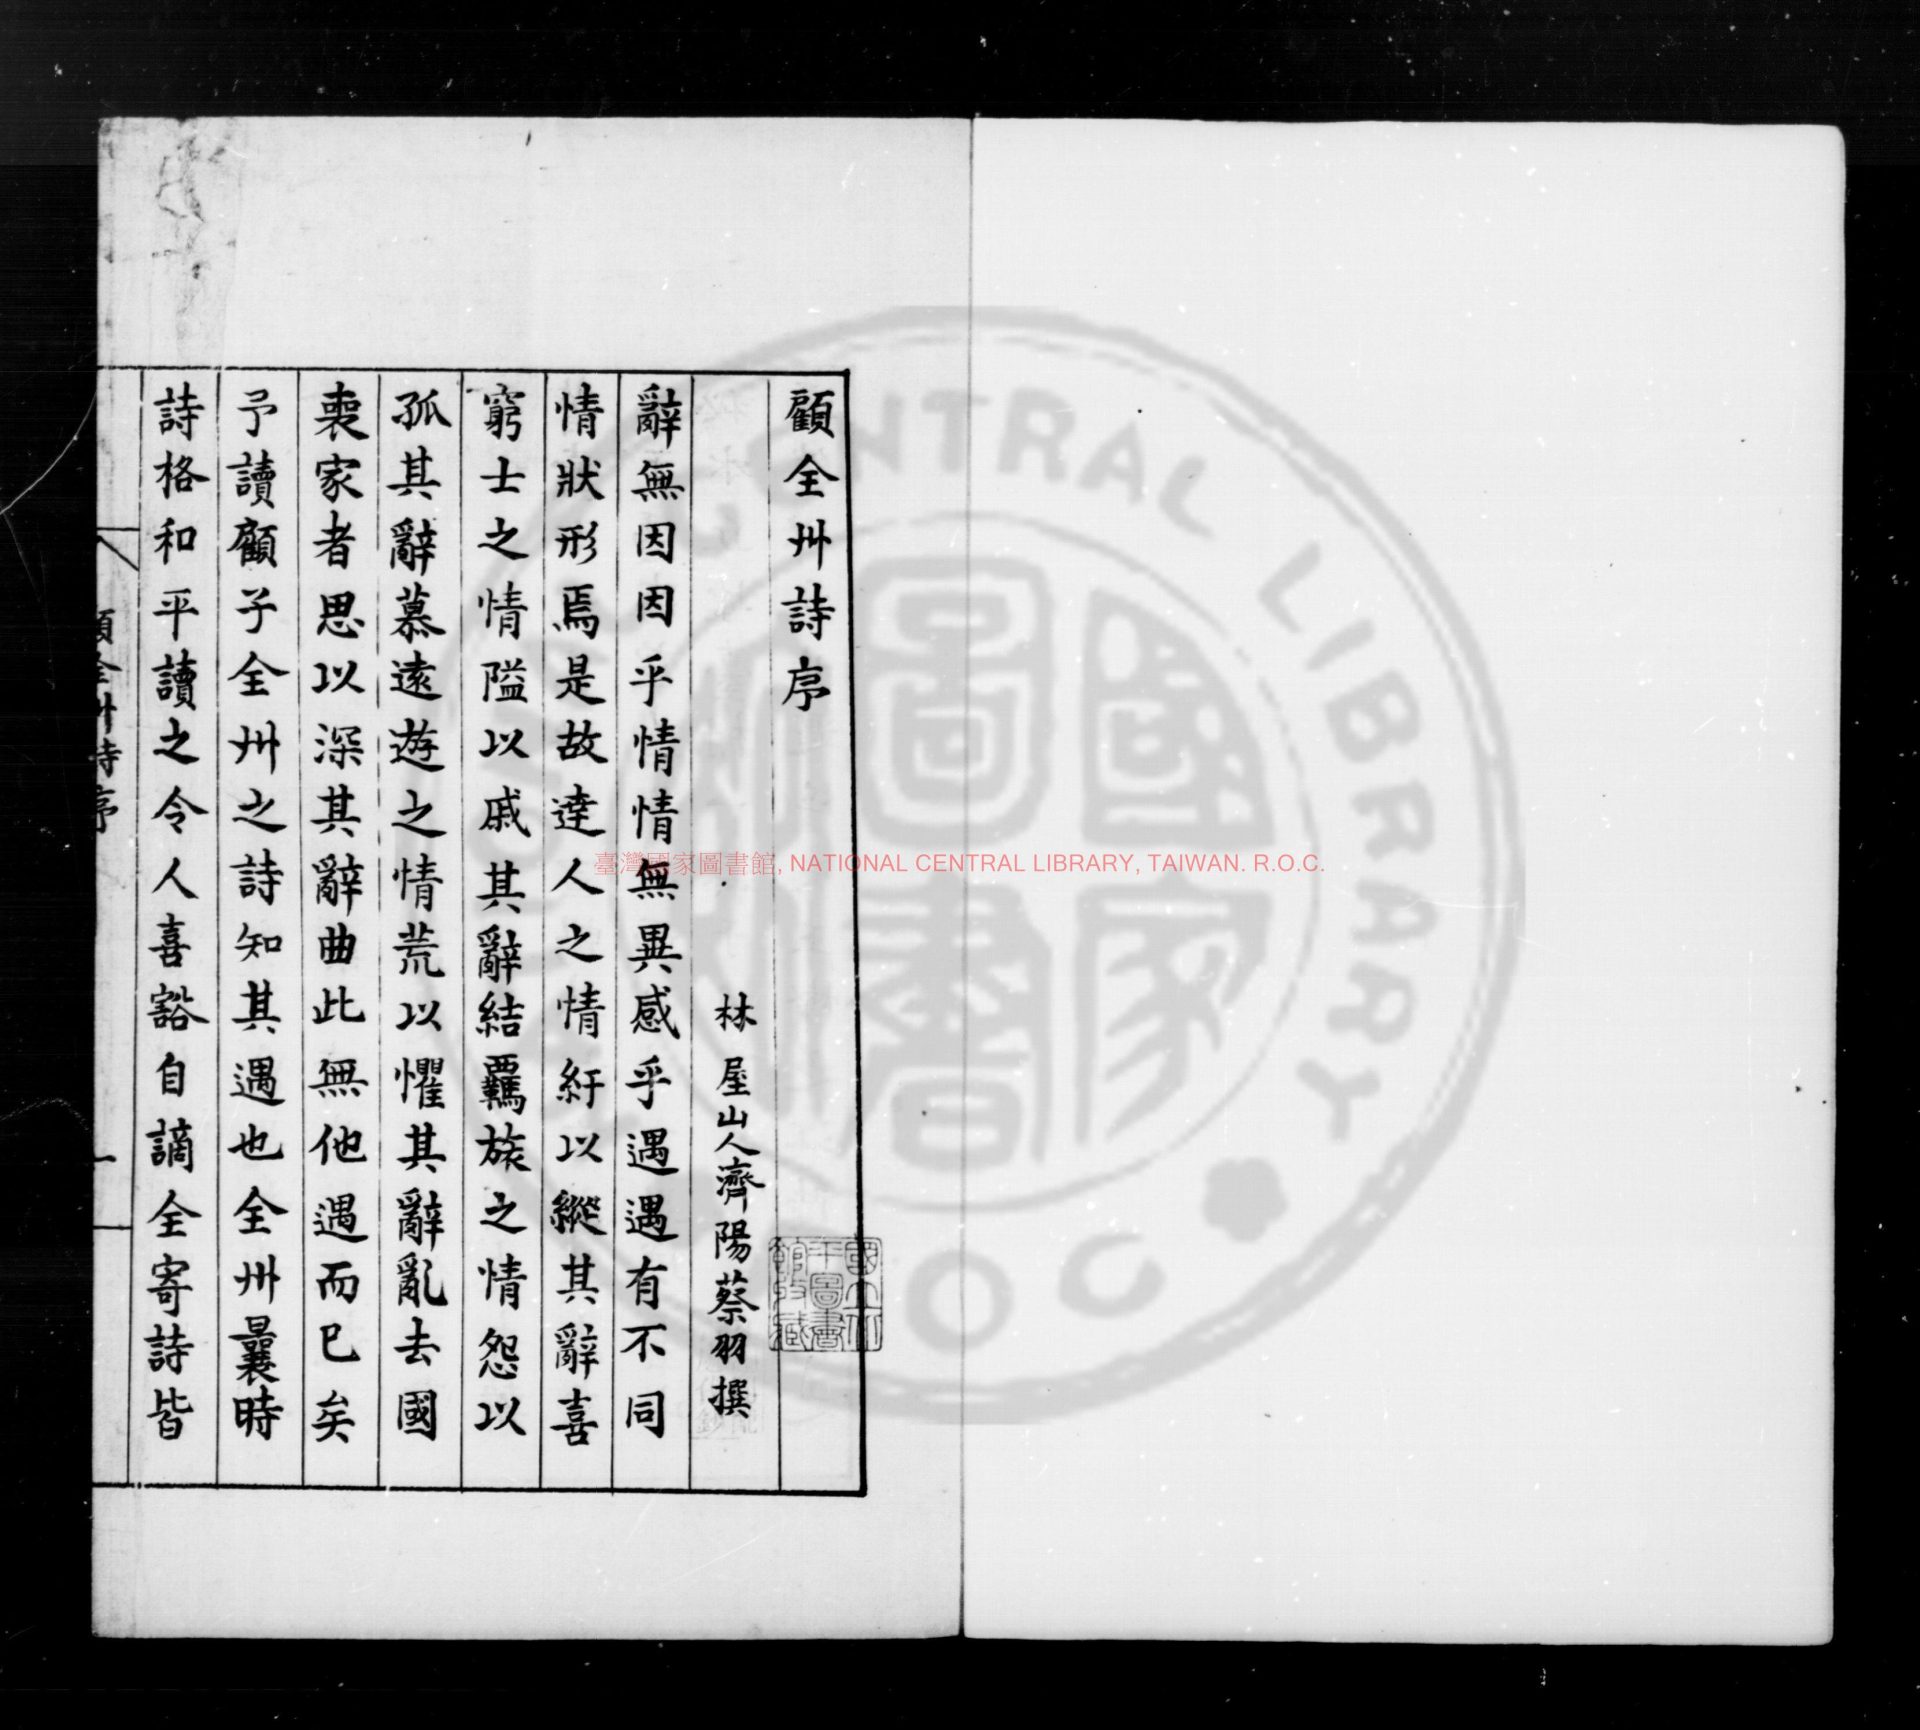 顧全州詩序
林屋山人濟陽蔡羽撰
辭無因因乎情情無異感乎遇遇有不同
情狀形焉是故達人之情紆以縱其辭喜
窮士之情隘以戚其辭結羈旅之情怨以
孤其辭慕遠遊之情荒以懼其辭亂去國
喪家者思以深其辭曲此無他遇而已矣
予讀顧子全州之詩知其遇也全州曩時
詩格和平讀之令人喜豁自謫全寄詩皆
顧全州詩序
一
國立中央圖書館收藏
臺灣國家圖書館, NATIONAL CENTRAL LIBRARY, TAIWAN. R.O.C.
國家圖書
CENTRAL LIBRARY